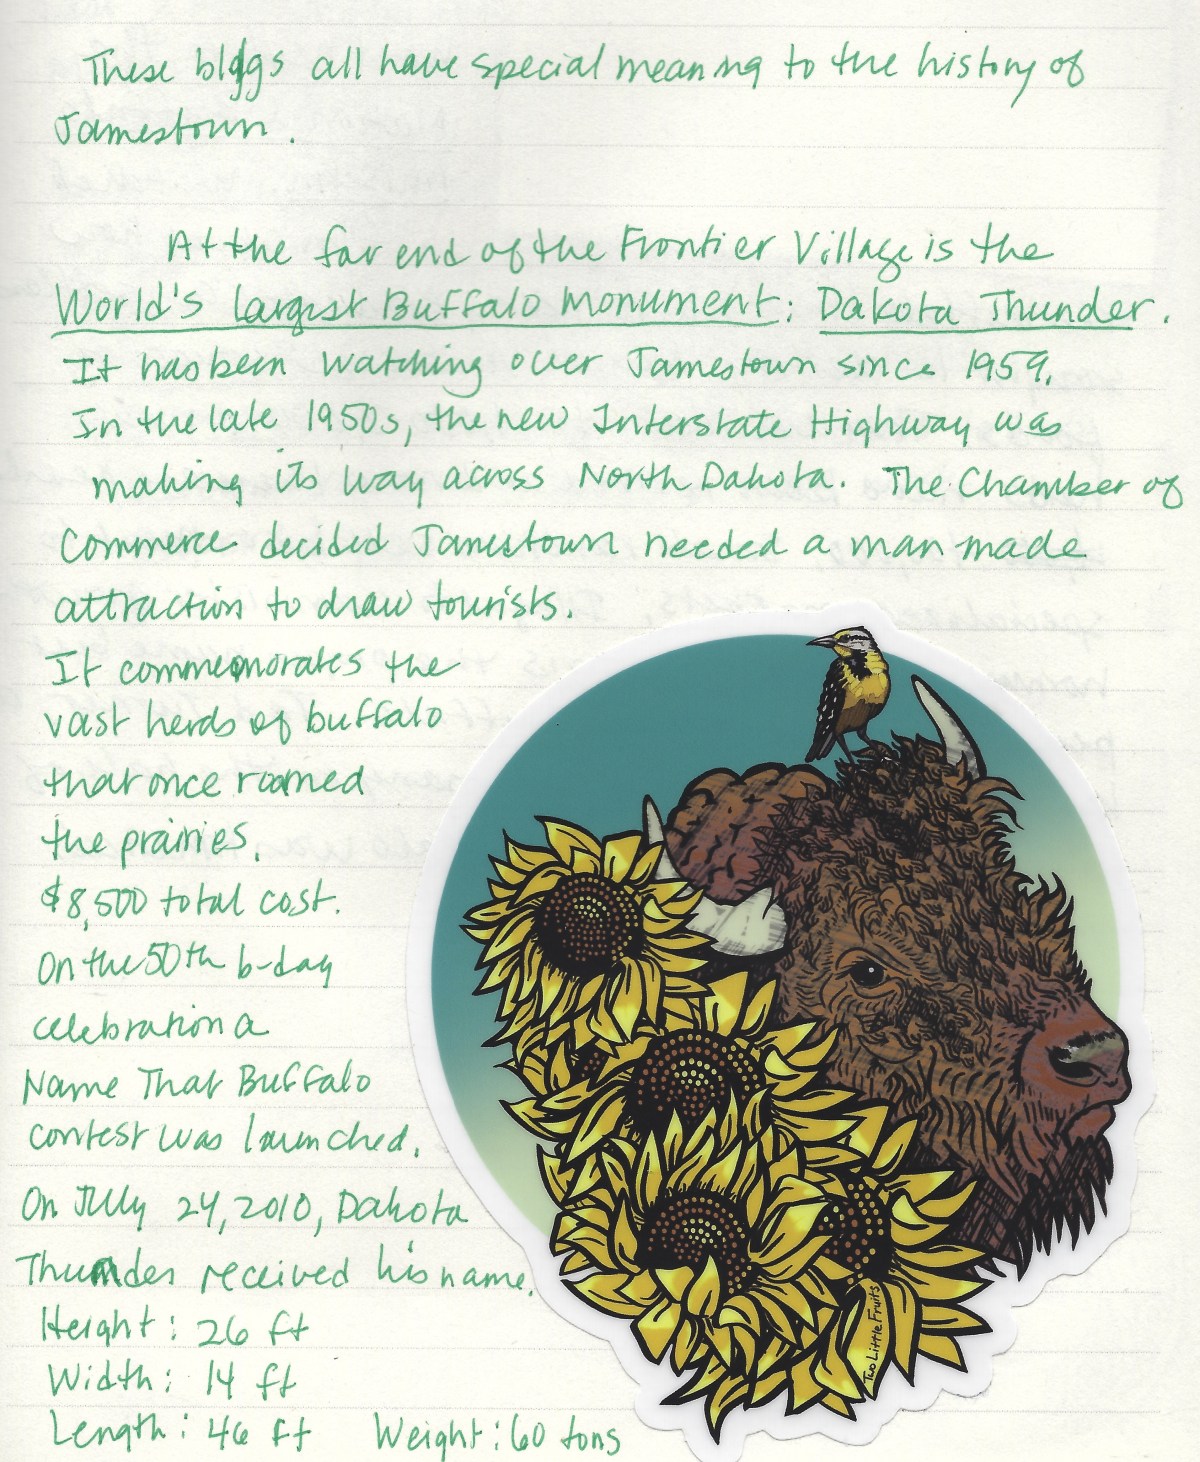 These bldgs all have special meaning to the history of
Jamestown.
At the far end of the Frontier Village is the
World's largest Buffalo Monument: Dakota Thunder.
It has been watching over Jamestown since 1959.
In the late 1950s, the new Interstate Highway was
making its way across North Dakota. The Chamber of
Commerce decided Jamestown needed a man made
attraction to draw tourists.
It commemorates the
vast herds of buffalo
that once roamed
the prairies.
$8,500 total cost.
On the 50th b-day
celebration a
Name That Buffalo
contest was launched.
On July 24, 2010, Dakota
Thunder received his name.
Height: 26 ft
Width: 14 ft
Length: 46 ft Weight: 60 tons
Two Little Fruits